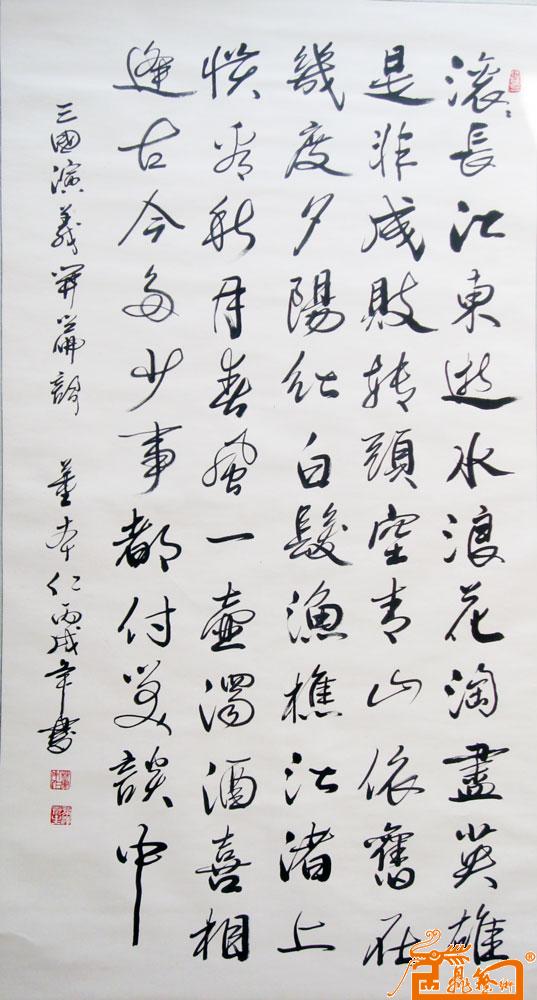 滚〻長江東逝水浪花淘盡英雄
是非成敗转頭空青山依舊在
幾度夕陽红白髮漁樵江渚上
惯看秋月春風一壺濁酒喜相
逢古今多少事都付笑談中
三國演義開篇詞 董本仁丙戌年書